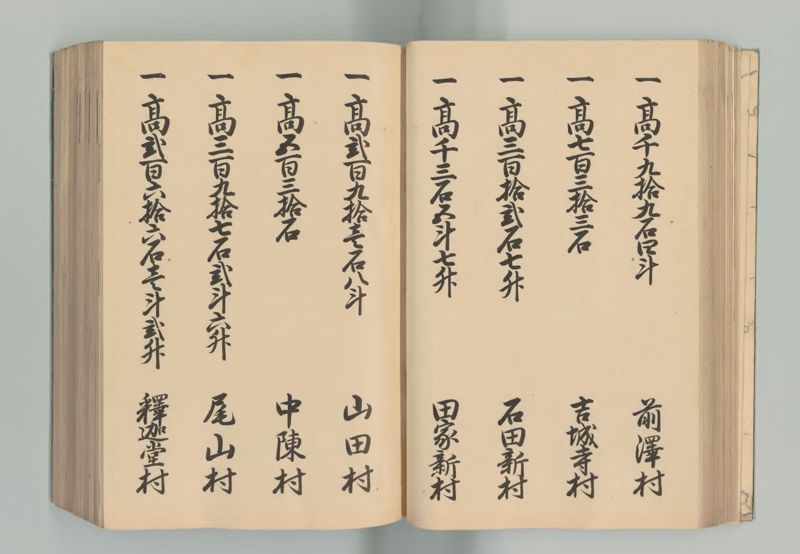 一 高千九拾九石四斗 前澤村
一 高七百三拾三石 吉城寺村
一 高三百拾弐石七升 石田新村
一 高千三石五斗七升 田家新村
一 高弐百九拾壱石八斗 山田村
一 高五百三拾石 中陳村
一 高三百九拾七石弐斗六升 尾山村
一 高弐百六拾六石壱斗弐升 釋迦堂村